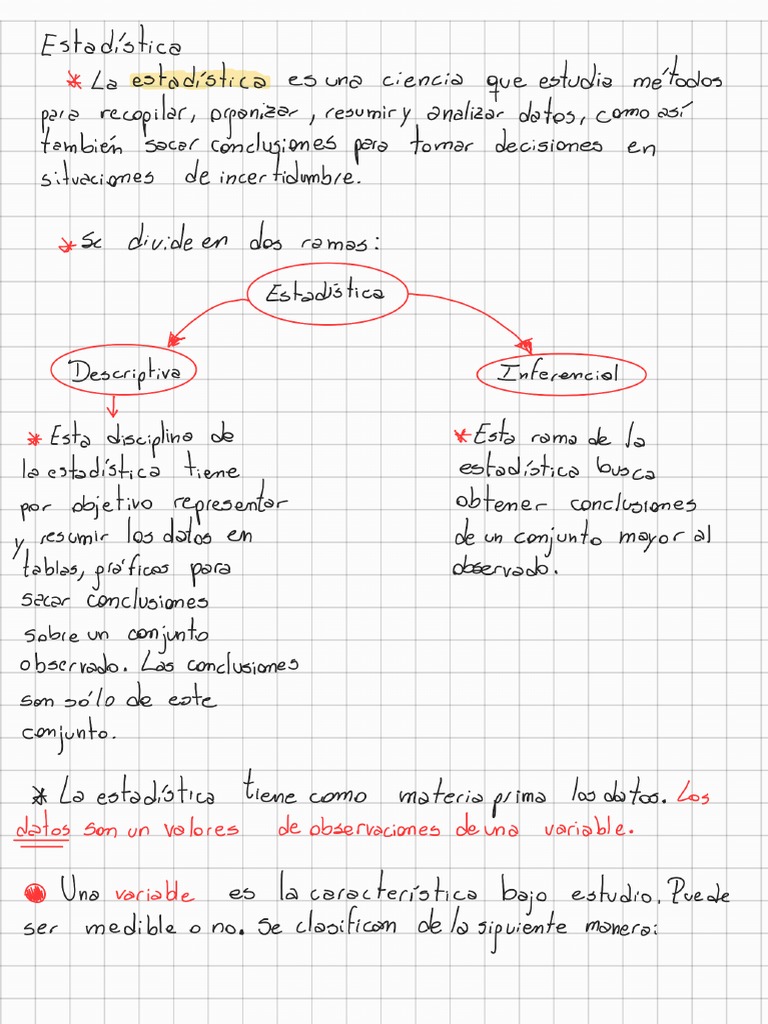 Estadística
* La estadística es una ciencia que estudia métodos
para recopilar, organizar, resumir y analizar datos, como así
también sacar conclusiones para tomar decisiones en
situaciones de incertidumbre.
* Se divide en dos ramas:
Estadística
Descriptiva
Inferencial
* Esta disciplina de
la estadística tiene
por objetivo representar
y resumir los datos en
tablas, gráficos para
sacar conclusiones
sobre un conjunto
observado. Las conclusiones
son sólo de este
conjunto.
* Esta rama de la
estadística busca
obtener conclusiones
de un conjunto mayor al
observado.
* La estadística tiene como materia prima los datos. Los
datos son un valores de observaciones de una variable.
Una variable es la característica bajo estudio. Puede
ser medible o no. Se clasifican de la siguiente manera: